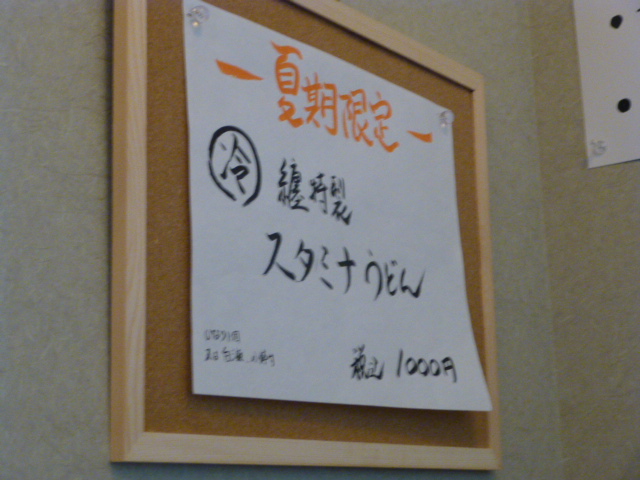 ー夏期限定ー
冷 纏特製
スタミナうどん
税込 1000円